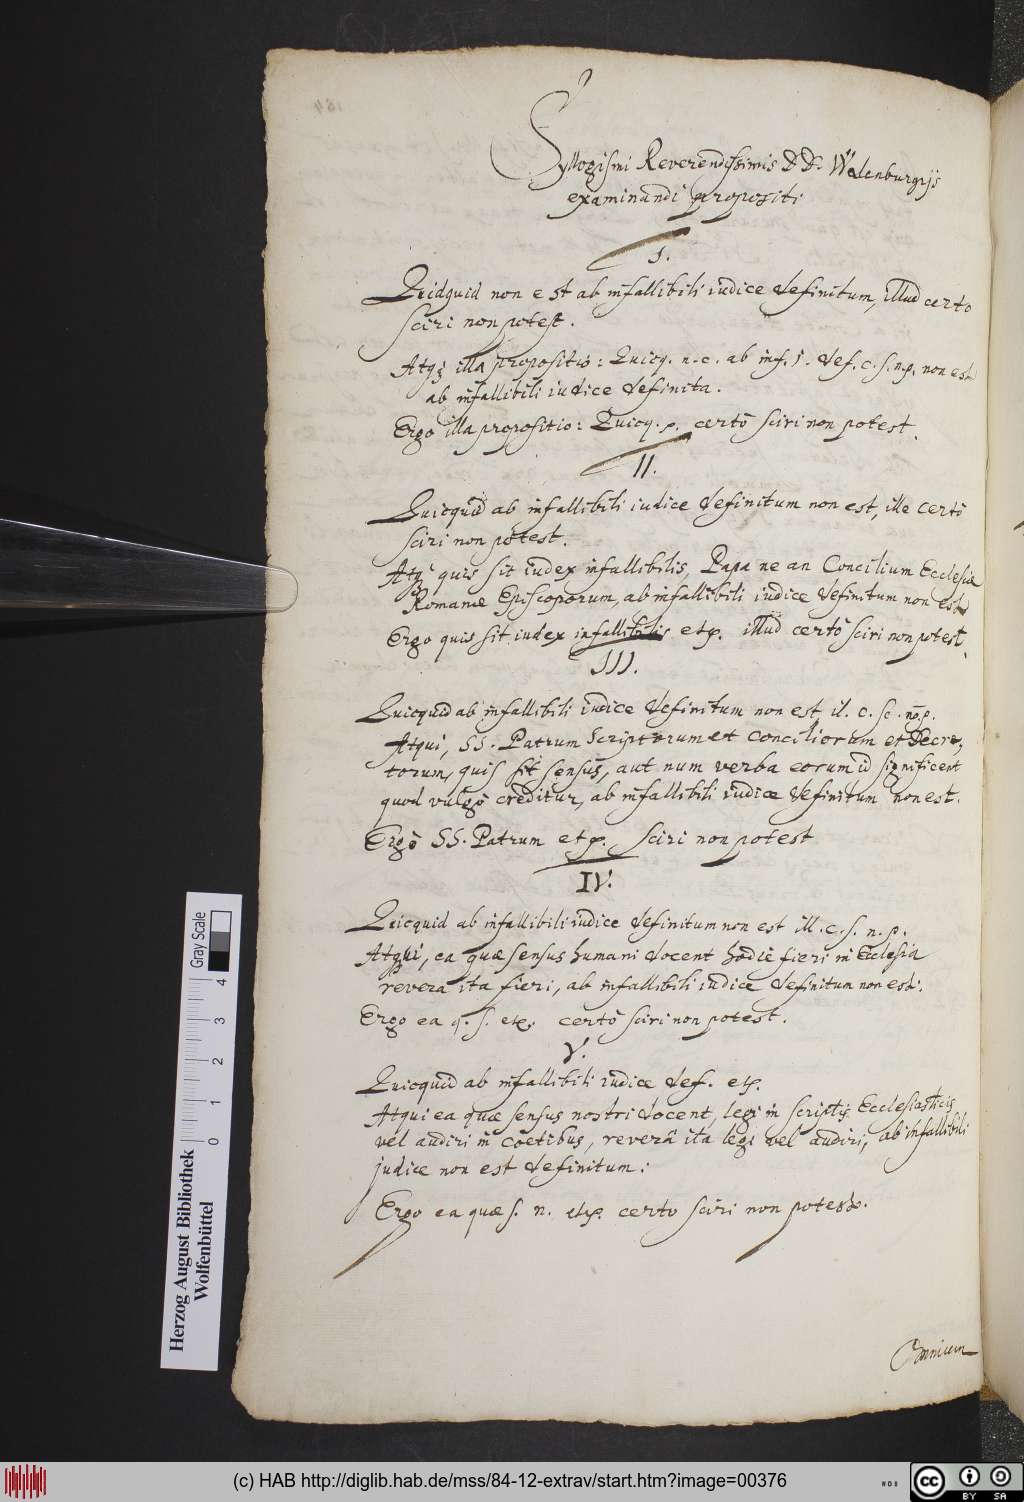 Syllogismi Reverendissimis DD. Walenburgijs
examinandi propositi
I.
Quidquid non est ab infallibili iudice definitum, illud certo
sciri non potest.
Atqz illa propositio: Quicq. n. e. ab inf. i. def. c. s. n. p. non est
ab infallibili iudice definita.
Ergo illa propositio: Quicq. p. certò sciri non potest.
II.
Quicquid ab infallibili iudice definitum non est, ille certò
sciri non potest.
Atq quis sit iudex infallibilis, Papa ne an Concilium Ecclesiæ
Romanæ Episcoporum, ab infallibili iudice definitum non est
Ergo quis sit iudex infallibilis etp. illud certò sciri non potest.
III.
Quicquid ab infallibili iudice definitum non est il. c. sc. no. p.
Atqui, SS. Patrum Scriptorum et Conciliorum et Decre,
torum, quis sit sensus, aut num verba eorum id significent
quod vulgò creditur, ab infallibili iudice definitum non est.
Ergò SS. Patrum etp. sciri non potest
IV.
Quicquid ab infallibili iudice definitum non est ill. c. s. n. p.
Atqui, ea quæ sensus humani docent hodie fieri in Ecclesia
revera ita fieri, ab infallibili iudice definitum non est.
Ergo ea q. s. etp. certò sciri non potest.
V.
Quicquid ab infallibili iudice def. etp.
Atqui ea quæ sensus nostri docent, legi in scriptis Ecclesiasticis
vel audiri in coetibus, reverâ ita legi vel audiri, ab infallibili
judice non est definitum:
Ergo ea quæ s. n. etp. certo sciri non potest.
Omnium
Herzog August Bibliothek
Wolfenbüttel
0 1 2 3 4 Gray Scale
(c) HAB http://diglib.hab.de/mss/84-12-extrav/start.htm?image=00376
cc BY SA